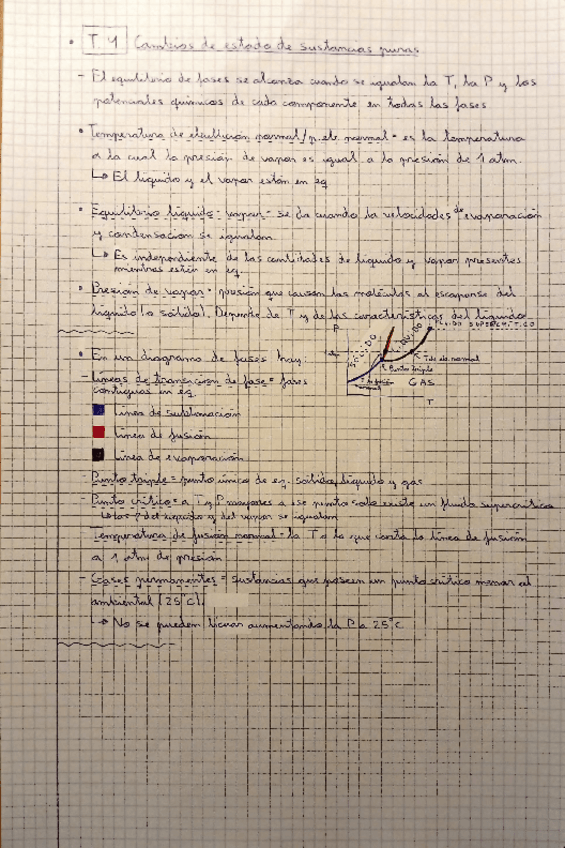 T. 4 Cambios de estado de sustancias puras
- El equilibrio de fases se alcanza cuando se igualan la T, la P y los
potenciales químicos de cada componente en todas las fases
• Temperatura de ebullición normal/p.eb. normal = es la temperatura
a la cual la presión de vapor es igual a la presión de 1 atm.
↳ El líquido y el vapor están en eq
• Equilibrio líquido-vapor = se da cuando la velocidades de evaporación
y condensación se igualan
↳ Es independiente de las cantidades de líquido y vapor presentes
mientras estén en eq.
• Presión de vapor = presión que causan las moléculas al escaparse del
líquido (o sólido). Depende de T y de las características del líquido
P
SÓLIDO
LÍQUIDO
FLUIDO SUPERCRÍTICO
T de eb. normal
Punto triple
GAS
T
• En un diagrama de fases hay:
- Líneas de transición de fase = fases
contiguas en eq.
Línea de sublimación
Línea de fusión
Línea de evaporación
Punto triple = punto único de eq. sólido, líquido y gas
- Punto crítico = a T y P mayores a ese punto solo existe un fluido supercrítico
del líquido y del vapor se igualan
Temperatura de fusión normal = la T a la que corta la línea de fusión
a 1 atm de presión
- Gases permanentes = sustancias que poseen un punto crítico menor al
ambiental (25°C).
↳ No se pueden licuar aumentando la P a 25°C